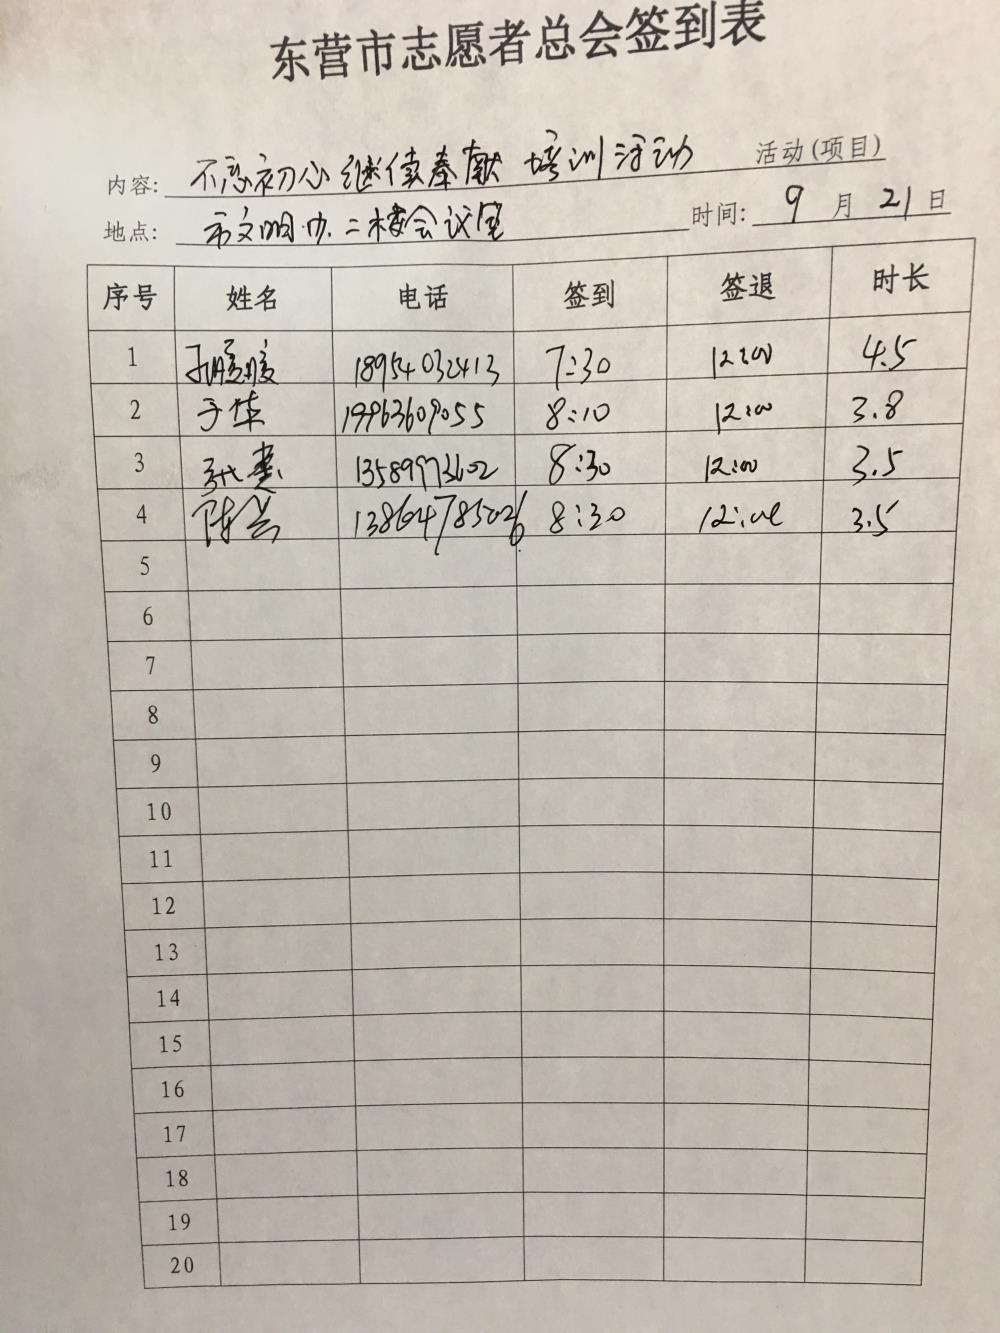 东营市志愿者总会签到表
内容: 不忘初心继续奉献 培训活动 活动(项目)
地点: 市文明办二楼会议室 时间: 9月21日
序号 姓名 电话 签到 签退 时长
1 18954032413 7:30 12:00 4.5
2 于佳 19963609055 8:10 12:00 3.8
3 13589973602 8:30 12:00 3.5
4 陈兰 8:30 12:00 3.5
5
6
7
8
9
10
11
12
13
14
15
16
17
18
19
20